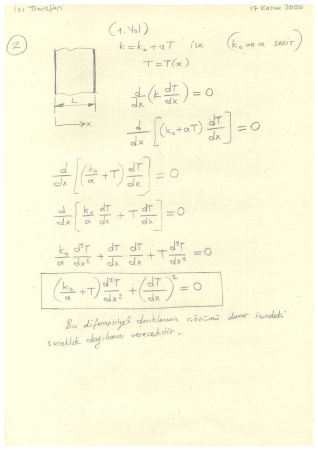 Isı Transferi 17 Kasım 2006
(1. Yol)
2
k = k₀ + aT ise (k₀ ve a sabit)
T = T(x)
L
x
d/dx (k dT/dx) = 0
d/dx [(k₀ + aT) dT/dx] = 0
d/dx [(k₀/a + T) dT/dx] = 0
d/dx [k₀/a dT/dx + T dT/dx] = 0
k₀/a d²T/dx² + dT/dx dT/dx + T d²T/dx² = 0
(k₀/a + T) d²T/dx² + (dT/dx)² = 0
Bu diferansiyel denklemin çözümü duvar içindeki
sıcaklık dağılımını verecektir.